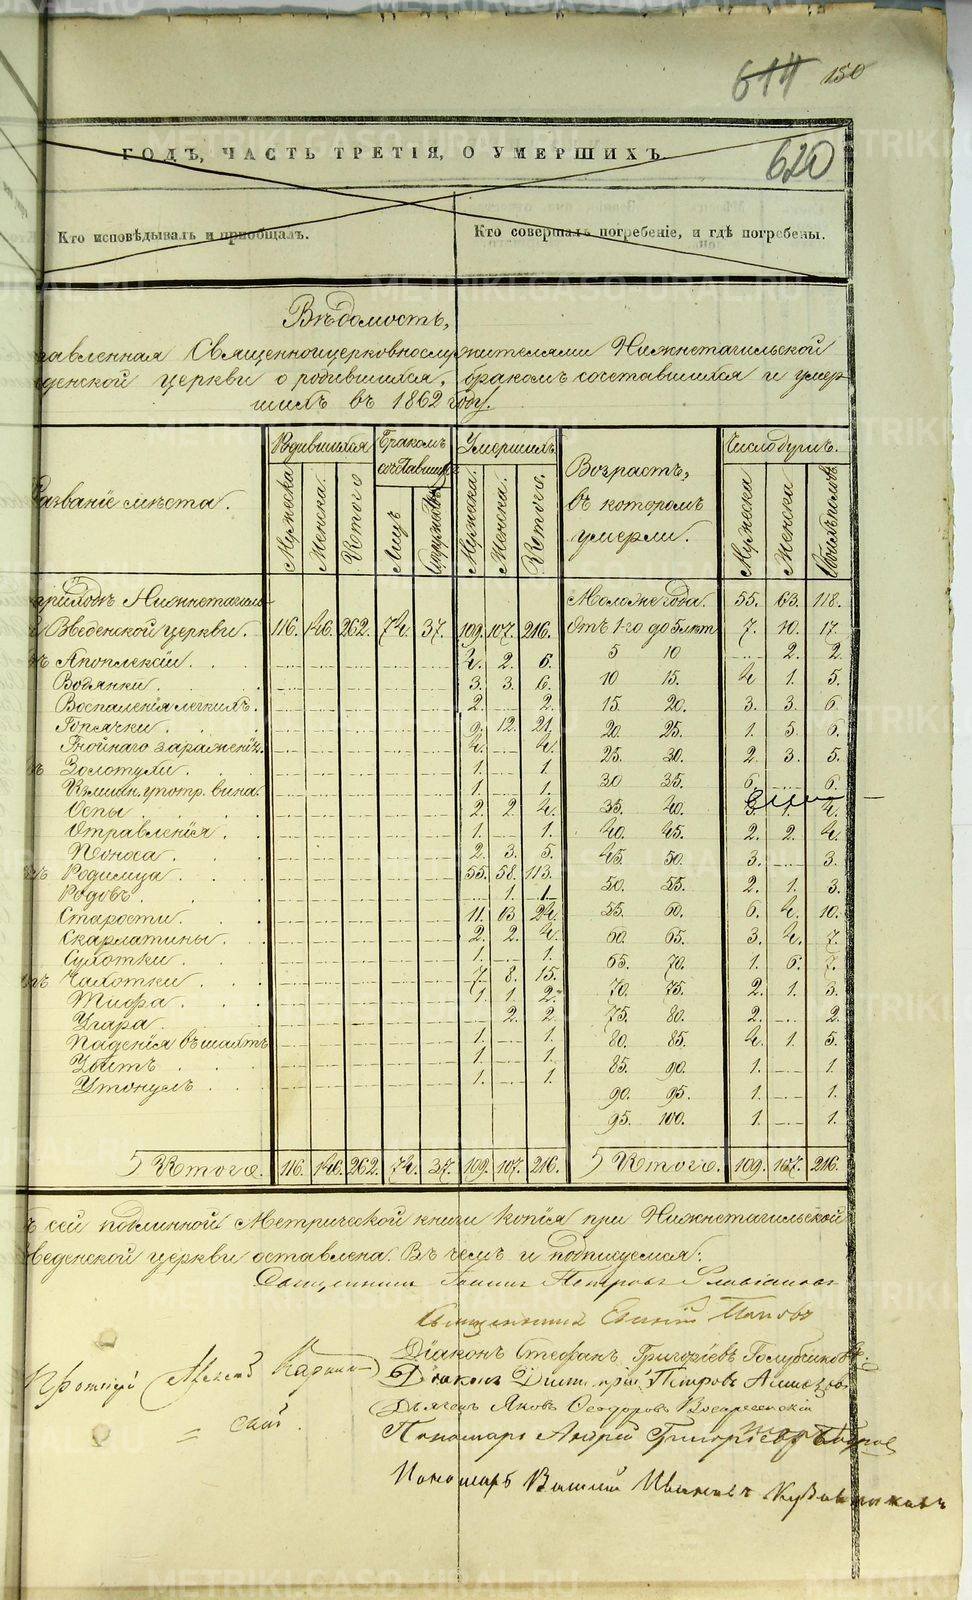 614 150
ГОДЪ, ЧАСТЬ ТРЕТІЯ, О УМЕРШИХЪ.
620
Кто исповѣдывалъ и пріобщалъ.
Кто совершалъ погребеніе, и гдѣ погребены.
Вѣдомость,
тавленная Священноицерковнослужителями Нижнетагильской
денской церкви о родившихся, бракомъ сочетавшихся и умер-
шихъ въ 1862 году.
Родившихся Бракомъ сочетавшихся Умершихъ Возрастъ, въ которомъ умерли. Число душъ.
азваніе мѣста. Мужеска Женска. Итого Лицъ Мужеска. Женска. Итого. Мужеска Женска
приходѣ Нижнетагиль- Моложе года. 55. 63. 118.
Введенской церкви. 116. 146. 262. 74. 37. 109. 107. 216. Отъ 1го до 5 лѣт 7. 10. 17.
Апоплексіи. 4. 2. 6. 5 10 2. 2.
Водянки. 3. 3. 6. 10 15. 4 1. 5.
Воспаленія легкихъ. 2 2. 15. 20. 3. 3. 6.
Горячки. 9. 12. 21. 20. 25. 1. 5. 6.
Гнойнаго зараженія. 4. 4. 25. 30. 2. 3. 5.
Золотухи. 1. 1. 30 35. 6. 6.
Излишн. употр. вина. 1. 1.
Оспы 2. 2. 4. 35. 40. 3. 1. 4.
Отравленія. 1. 1. 40. 45. 2. 2. 4.
Поноса. 2. 3. 5. 45. 50. 3. 3.
Родимца 55. 58. 113.
Родовъ. 1. 1. 50. 55. 2. 1. 3.
Старости. 11. 13 24. 55. 60. 6. 4. 10.
Скарлатины. 2. 2. 4. 60. 65. 3. 4. 7.
Сухотки. 1. 1. 65 70. 1. 6. 7.
Чахотки. 7. 8. 15.
Тифа. 1 1. 2. 70. 75. 2. 1. 3.
Угара. 2. 2. 75. 80. 2. 2.
Паденія въ шахтъ 1. 1. 80. 85. 4. 1. 5.
Убитъ. 1. 1. 85. 90. 1. 1.
Утонулъ. 1. 1.
90. 95. 1. 1.
95. 100. 1. 1.
Итого. 116. 146. 262. 74. 37. 109. 107. 216. Итого. 109. 107. 216.
ъ сей подлинной Метрической книги копія при Нижнетагильской
веденской церкви оставлена. Въ чемъ и подписуемся:
Священникъ Іоаннъ Петровъ Словцовъ
Священникъ Евгеній Поповъ
Діаконъ Стефанъ Григоріевъ
Протоіерей Алексѣй
Діаконъ Димитрій Петровъ
Дьячекъ Яковъ Ѳеодоровъ Воскресенскій
Пономарь Андрей Григорьевъ
Пономарь Василій Ивановъ
METRIKI.GASO-URAL.RU